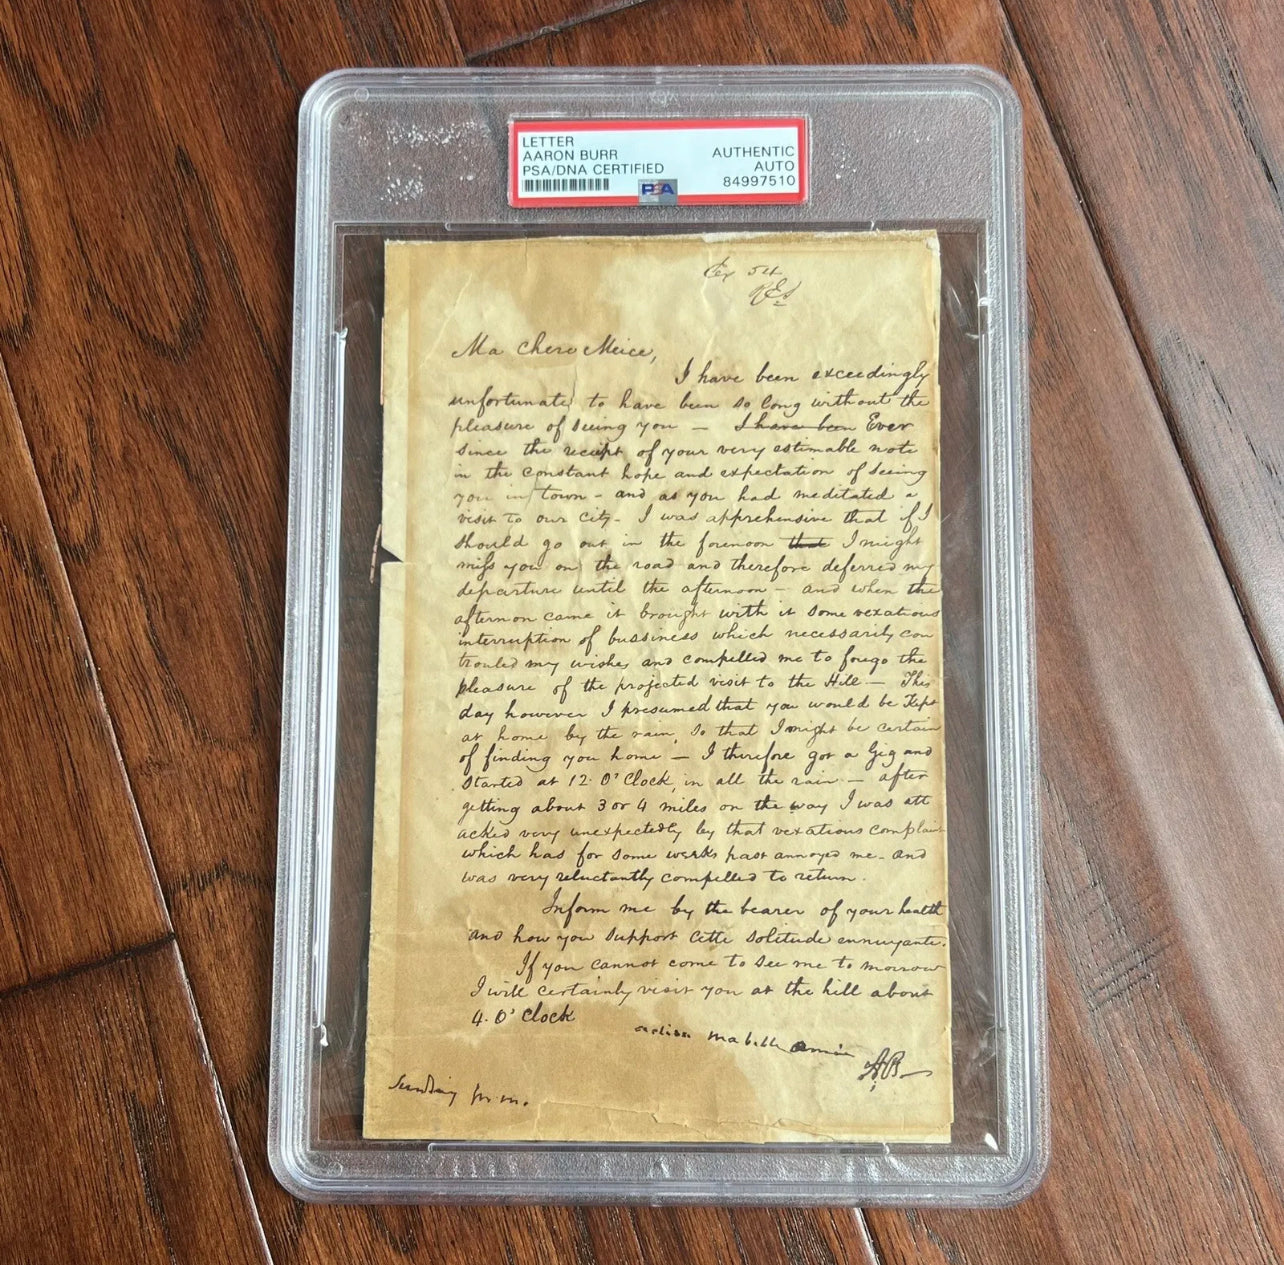 LETTER
AARON BURR
PSA/DNA CERTIFIED
AUTHENTIC
AUTO
84997510
PSA
Ex 54
Ma chere Meice,
I have been exceedingly
unfortunate to have been so long without the
pleasure of seeing you — I have been Ever
since the receipt of your very estimable note
in the constant hope and expectation of seeing
you in town - and as you had meditated a
visit to our City - I was apprehensive that if I
should go out in the forenoon that I might
miss you on the road and therefore deferred my
departure until the afternoon - and when the
afternoon came it brought with it some vexatious
interruption of bussiness which necessarily con
trouled my wishes and compelled me to forego the
pleasure of the projected visit to the Hill — This
day however I presumed that you would be Kept
at home by the rain, so that I might be certain
of finding you home — I therefore got a Gig and
started at 12 O'Clock, in all the rain — after
getting about 3 or 4 miles on the way I was att
acked very unexpectedly by that vexatious complaint
which has for some weeks past annoyed me - and
was very reluctantly compelled to return.
Inform me by the bearer of your health
and how you support cette solitude ennuyante.
If you cannot come to see me to morrow
I will certainly visit you at the hill about
4. O'Clock
ma belle amie
AB